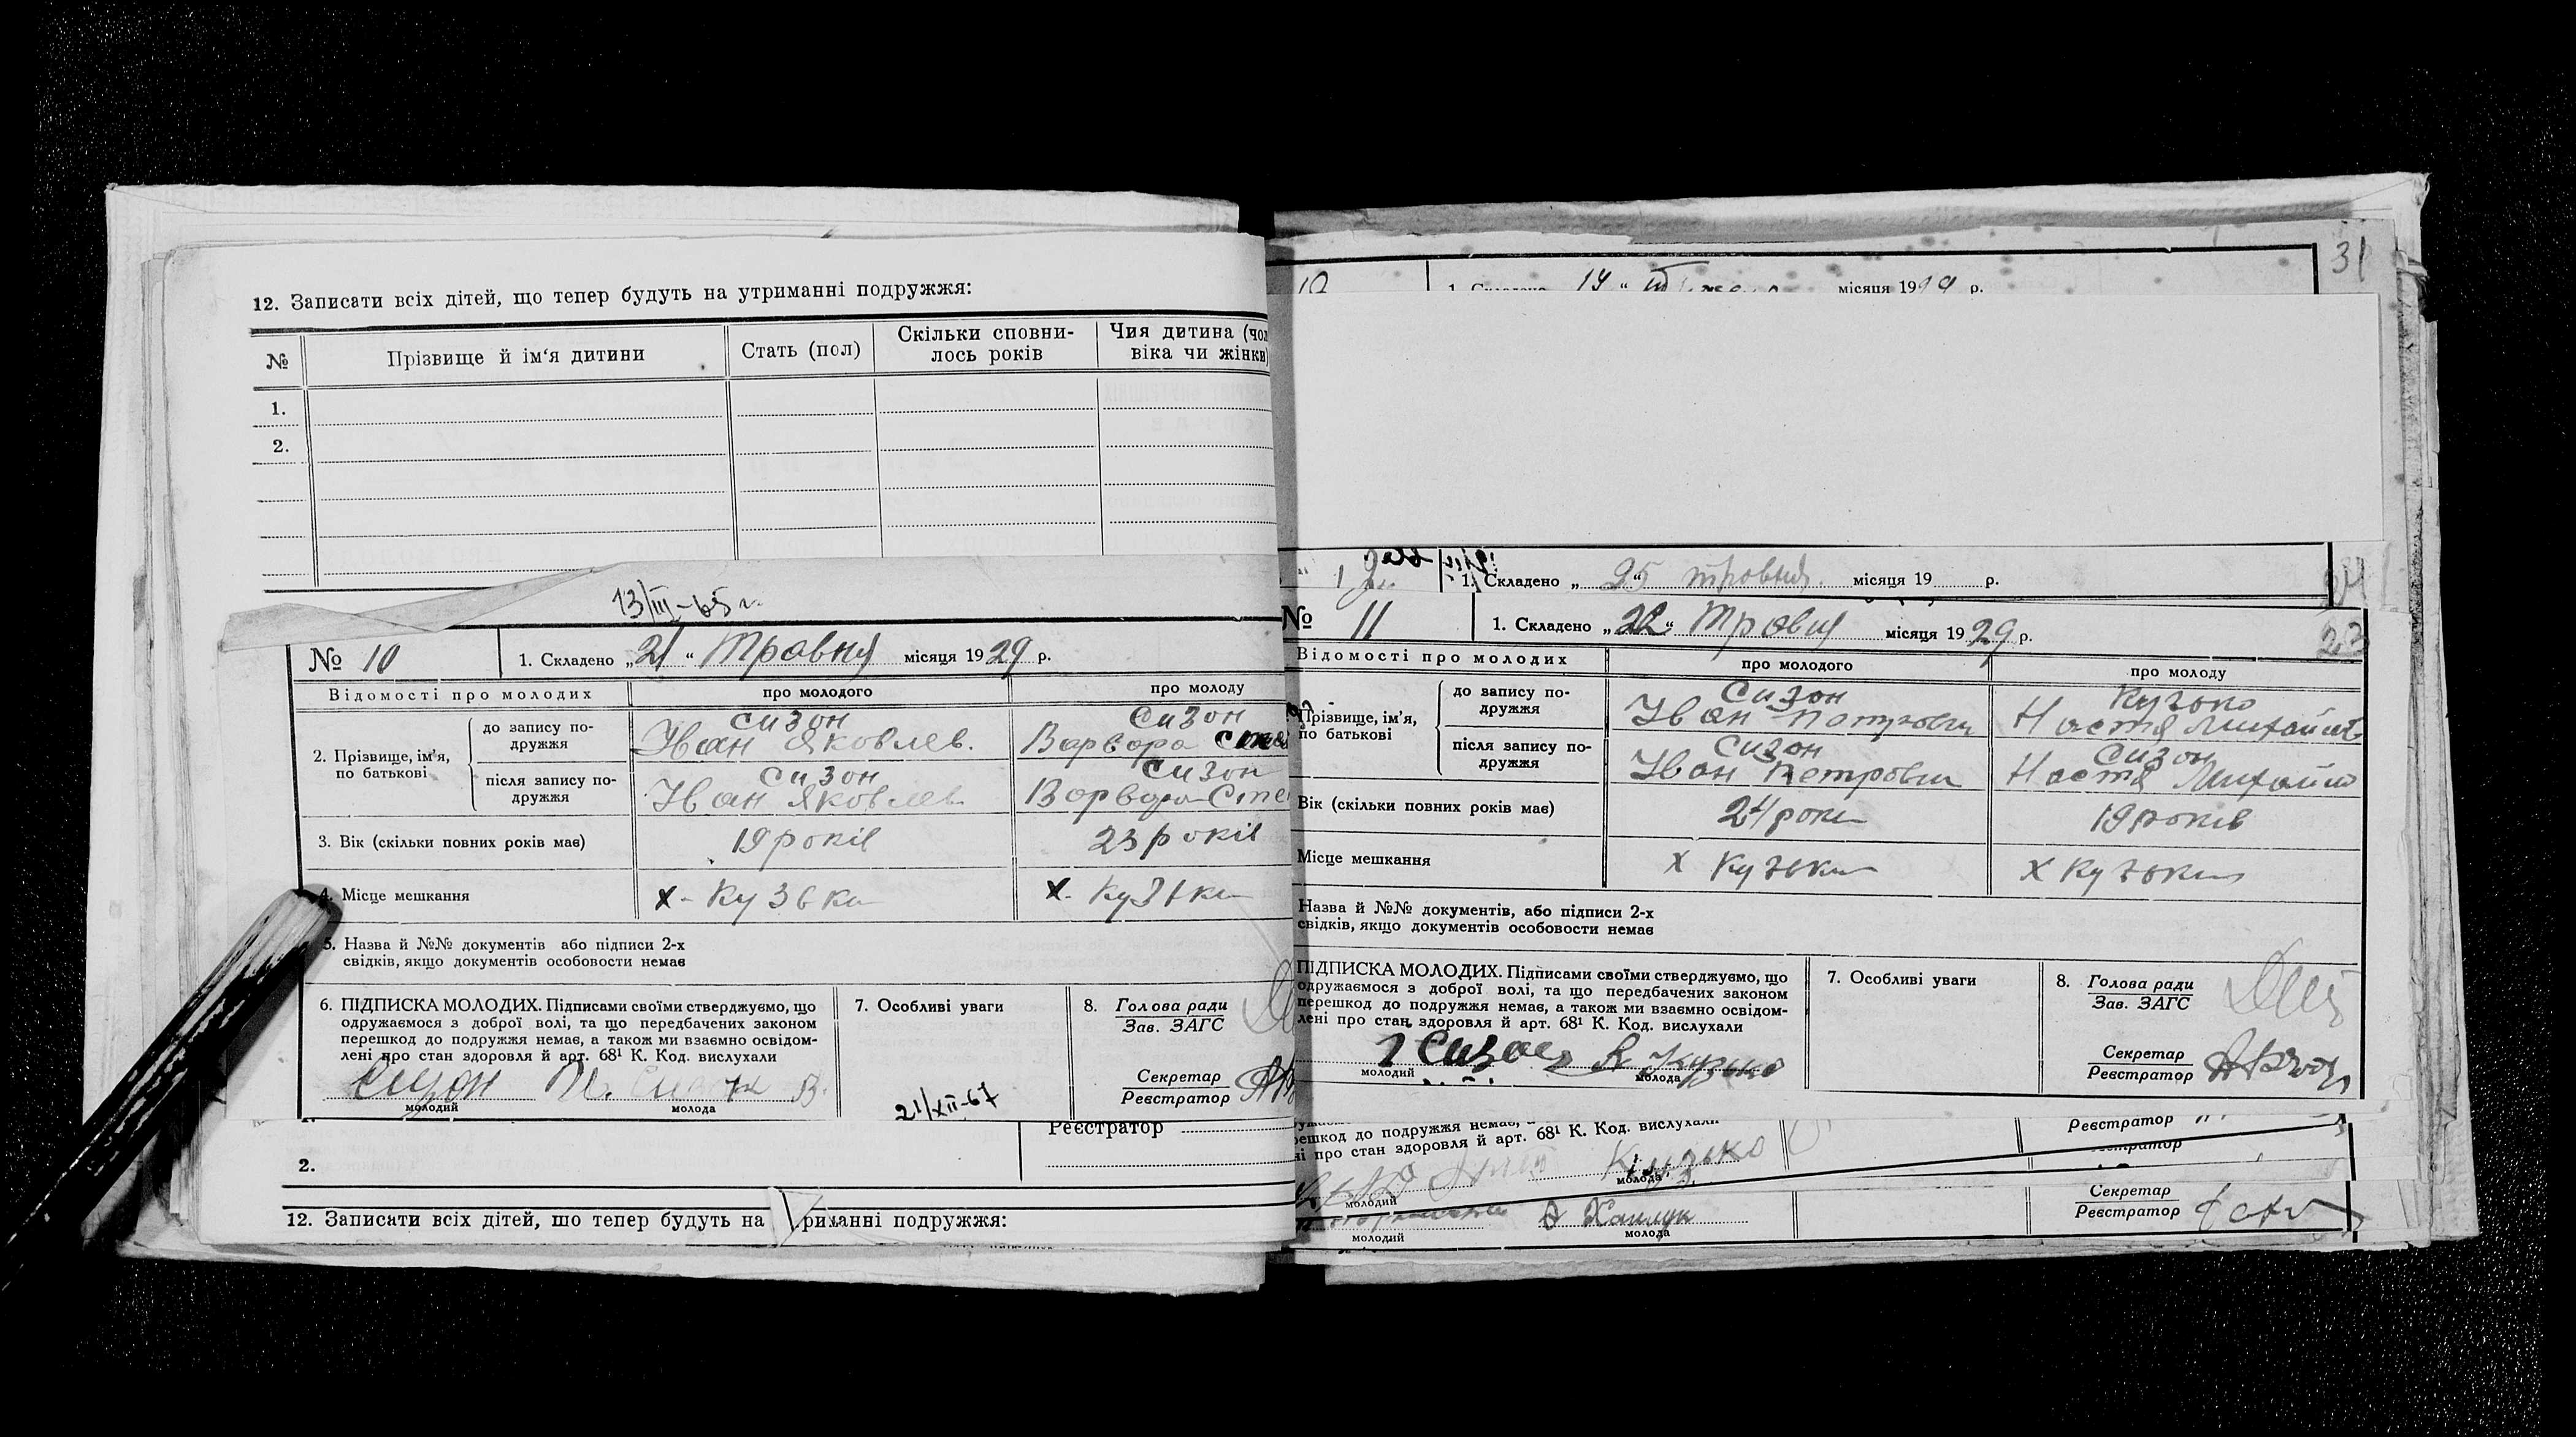 12. Записати всіх дітей, що тепер будуть на утриманні подружжя:
№ Прізвище й ім'я дитини Стать (пол) Скільки сповни-
лось років Чия дитина (чол
віка чи жінки)
1.
2.
13/III-65 г.
№ 10 1. Складено „21“ Травня місяця 1929 р.
Відомості про молодих про молодого про молоду
2. Прізвище, ім'я,
по батькові
до запису по-
дружжя
Сизон
Іван Яковлев.
Сизон
Варвара
після запису по-
дружжя
Сизон
Іван Яковлев
Сизон
Варвара Степ
3. Вік (скільки повних років має) 19 років 23 років
4. Місце мешкання х. Кузьки х. Кузьки
5. Назва й №№ документів або підписи 2-х
свідків, якщо документів особовости немає
6. ПІДПИСКА МОЛОДИХ. Підписами своїми стверджуємо, що
одружаємося з доброї волі, та що передбачених законом
перешкод до подружжя немає, а також ми взаємно освідом-
лені про стан здоровля й арт. 68¹ К. Код. вислухали
Сизон
молодий молода
7. Особливі уваги
21/XII-67
8. Голова ради
Зав. ЗАГС
Секретар
Реєстратор
Реєстратор
2.
12. Записати всіх дітей, що тепер будуть на
риманні подружжя:
31
10 1. Складено 14 “ місяця 1929 р.
1. Складено „ 25 “ травня місяця 19 р.
№ 11 1. Складено „22“ Травня місяця 1929 р.
23
Відомості про молодих про молодого про молоду
Прізвище, ім'я,
по батькові
до запису по-
дружжя
Сизон
Іван Петрович
Кузько
Настя Михайлів
після запису по-
дружжя
Сизон
Іван Петрович
Сизон
Настя Михайл
Вік (скільки повних років має) 24 роки 19 років
Місце мешкання х Кузьки х Кузьки
Назва й №№ документів, або підписи 2-х
свідків, якщо документів особовости немає
ПІДПИСКА МОЛОДИХ. Підписами своїми стверджуємо, що
одружаємося з доброї волі, та що передбачених законом
перешкод до подружжя немає, а також ми взаємно освідом-
лені про стан здоровля й арт. 68¹ К. Код. вислухали
І Сизон Кузько
молодий молода
7. Особливі уваги
8. Голова ради
Зав. ЗАГС
Секретар
Реєстратор
ешкод до подружжя немає,
і про стан здоровля й арт. 68¹ К. Код. вислухали
Кузько
молодий молода
Реєстратор
Секретар
Реєстратор
молодий молода